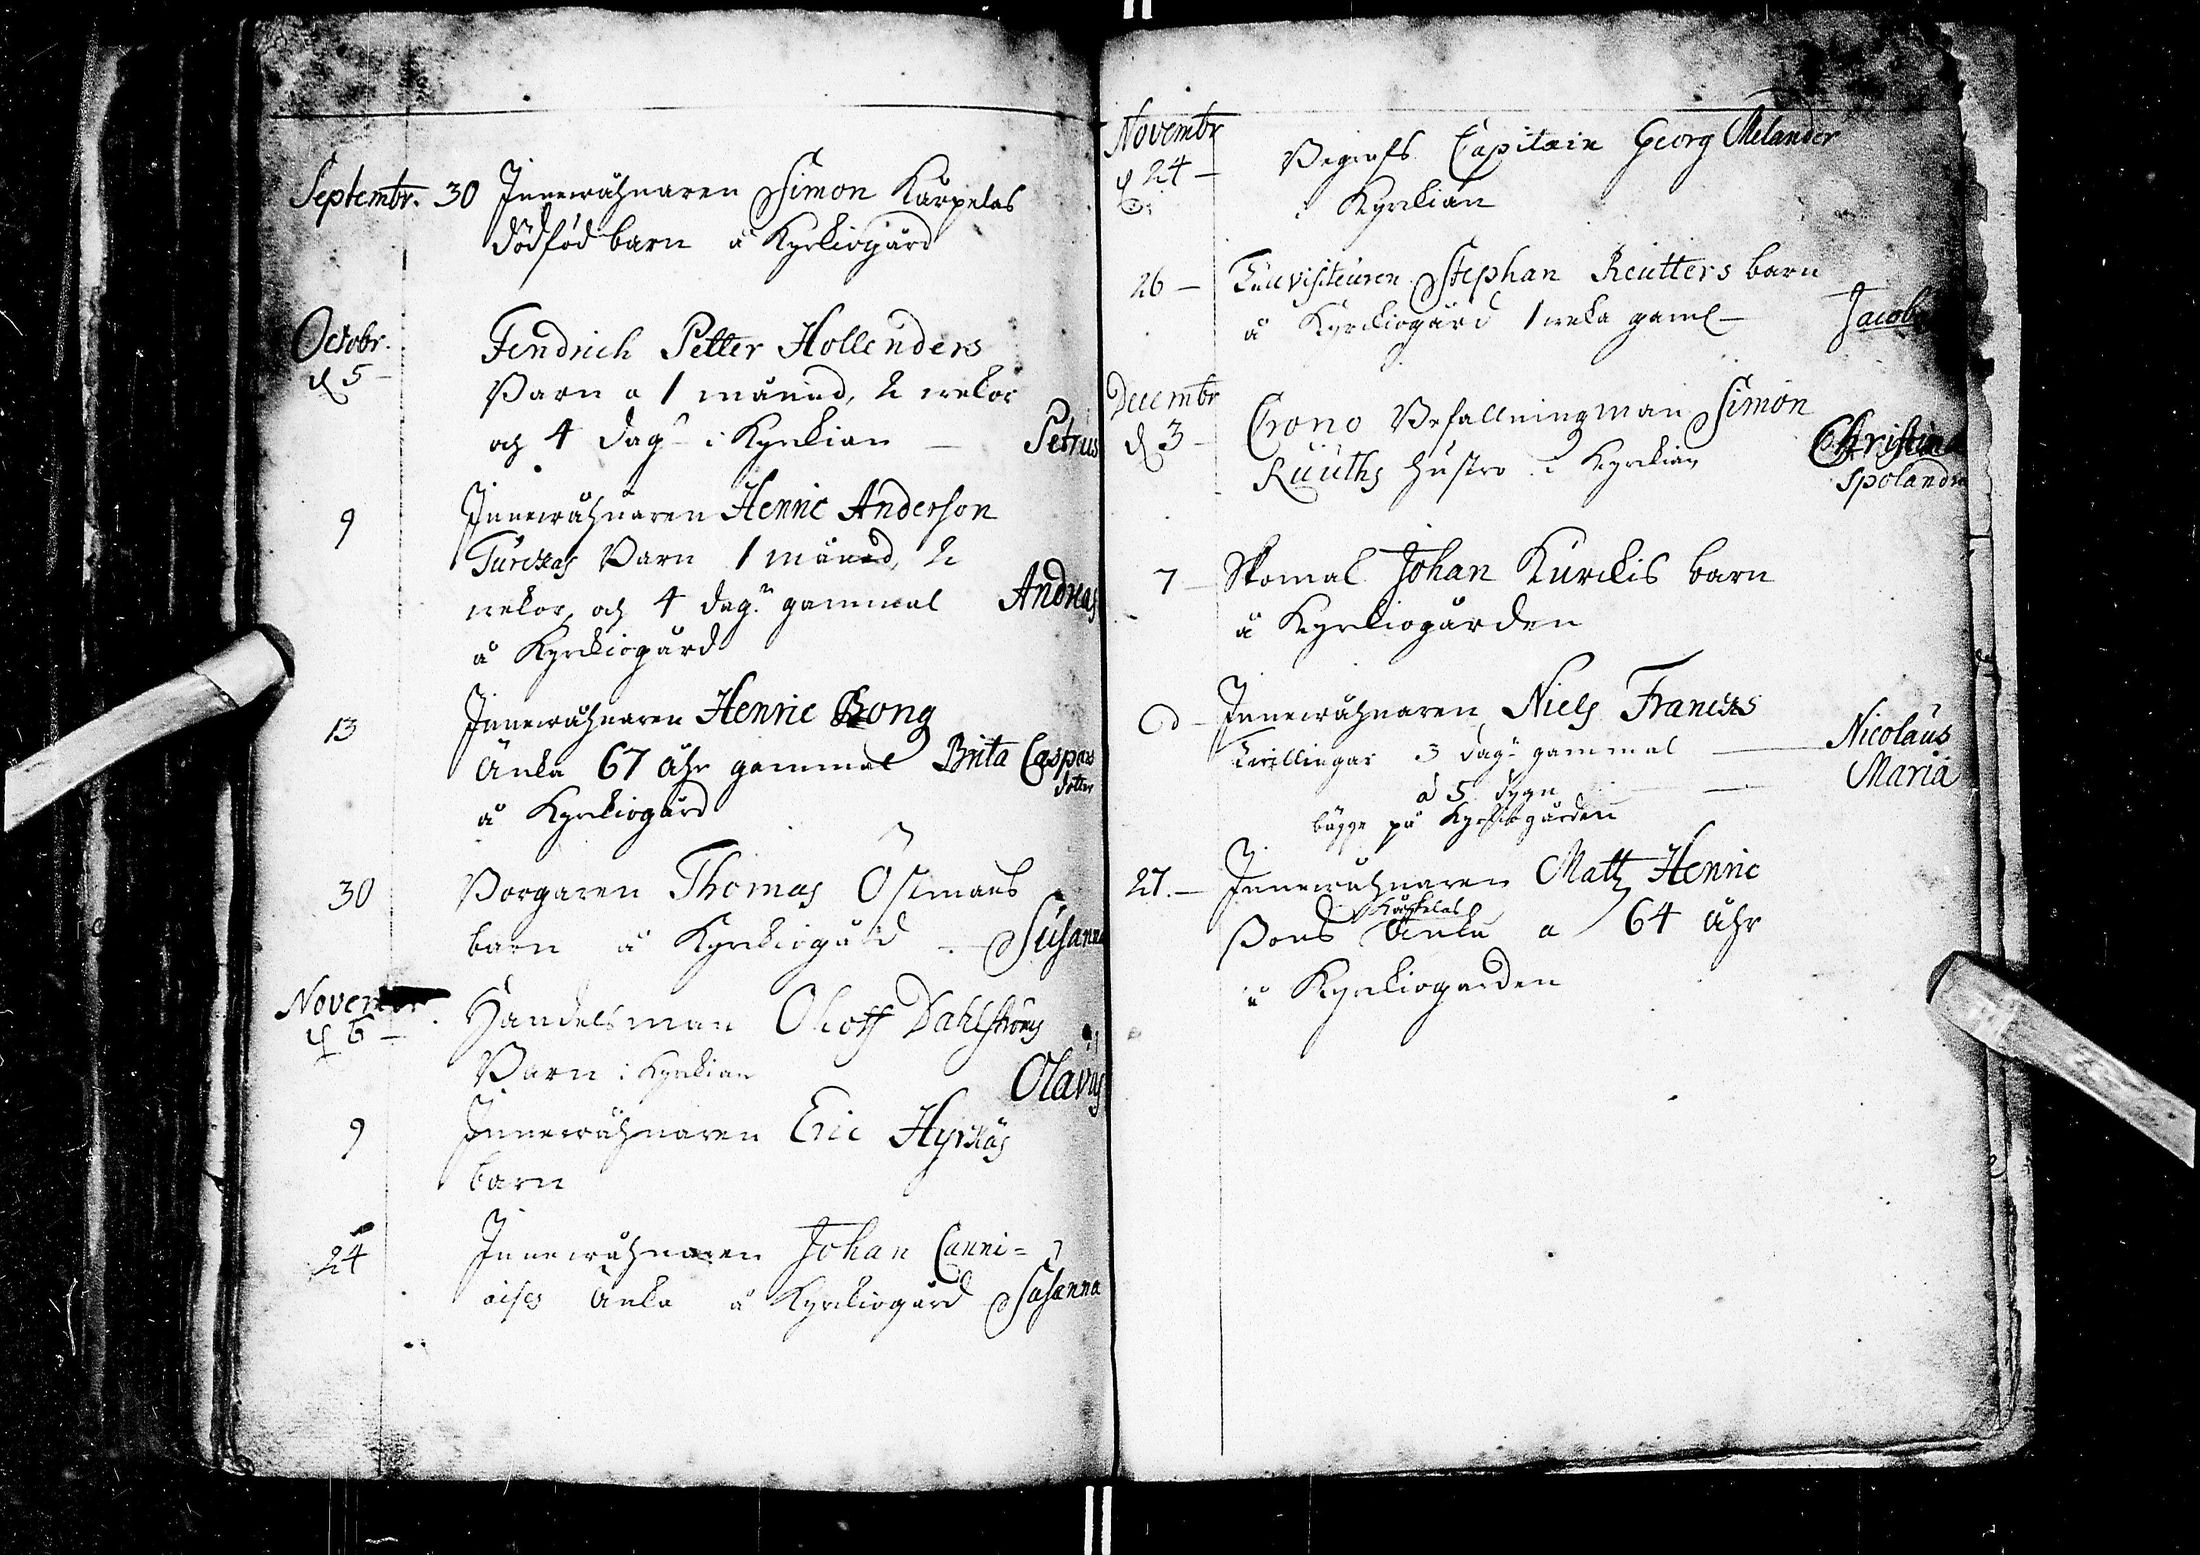 Septembr. 30 Innewåhnaren Simon Karpelas
dödföd barn å Kyrkiogård
Octobr. Fendrich Petter Hollenders
d 5 - Barn a 1 månad, 2 wekor
och 4 dagr i Kyrkian - Petrus
9 Innewåhnaren Henric Anderson
Turckas Barn 1 månad, 2
wekor, och 4 dagr gammal Andreas
å Kyrkiogård
13 Innewåhnaren Henric Bong
Änka 67 åhr gammal Brita Caspars
dotter
å Kyrkiogård
30 Borgaren Thomas Östmans
barn å Kyrkiogård - Susanna
Novembr Handelsman Oloff Dahlströms
d 6 - Barn i Kyrkian Olavus
9 Innewåhnaren Eric Hyrkäs
barn
24 Innewåhnaren Johan Canni=
aises Änka å Kyrkiogård Susanna
Novembr
d 24 - Begrofs Capitain Georg Melander
i Kyrkian
26 - Stephan Reutters barn
å Kyrkiogård 1 weka gaml - Jacob
Decembr
d 3 - Crono Befallningman Simon
Ruuths hustro i Kyrkian Christina
Spolandra
7 - Johan Kurckis barn
å Kyrkiogården
d - Innewåhnaren Niels Franckes
twillingar 3 dagr gammal - Nicolaus
a 5 dygn - Maria
bägge på Kyrkiogården
27. - Innewåhnaren Matts Henric
sons Änka a 64 åhr
å Kyrkiogården